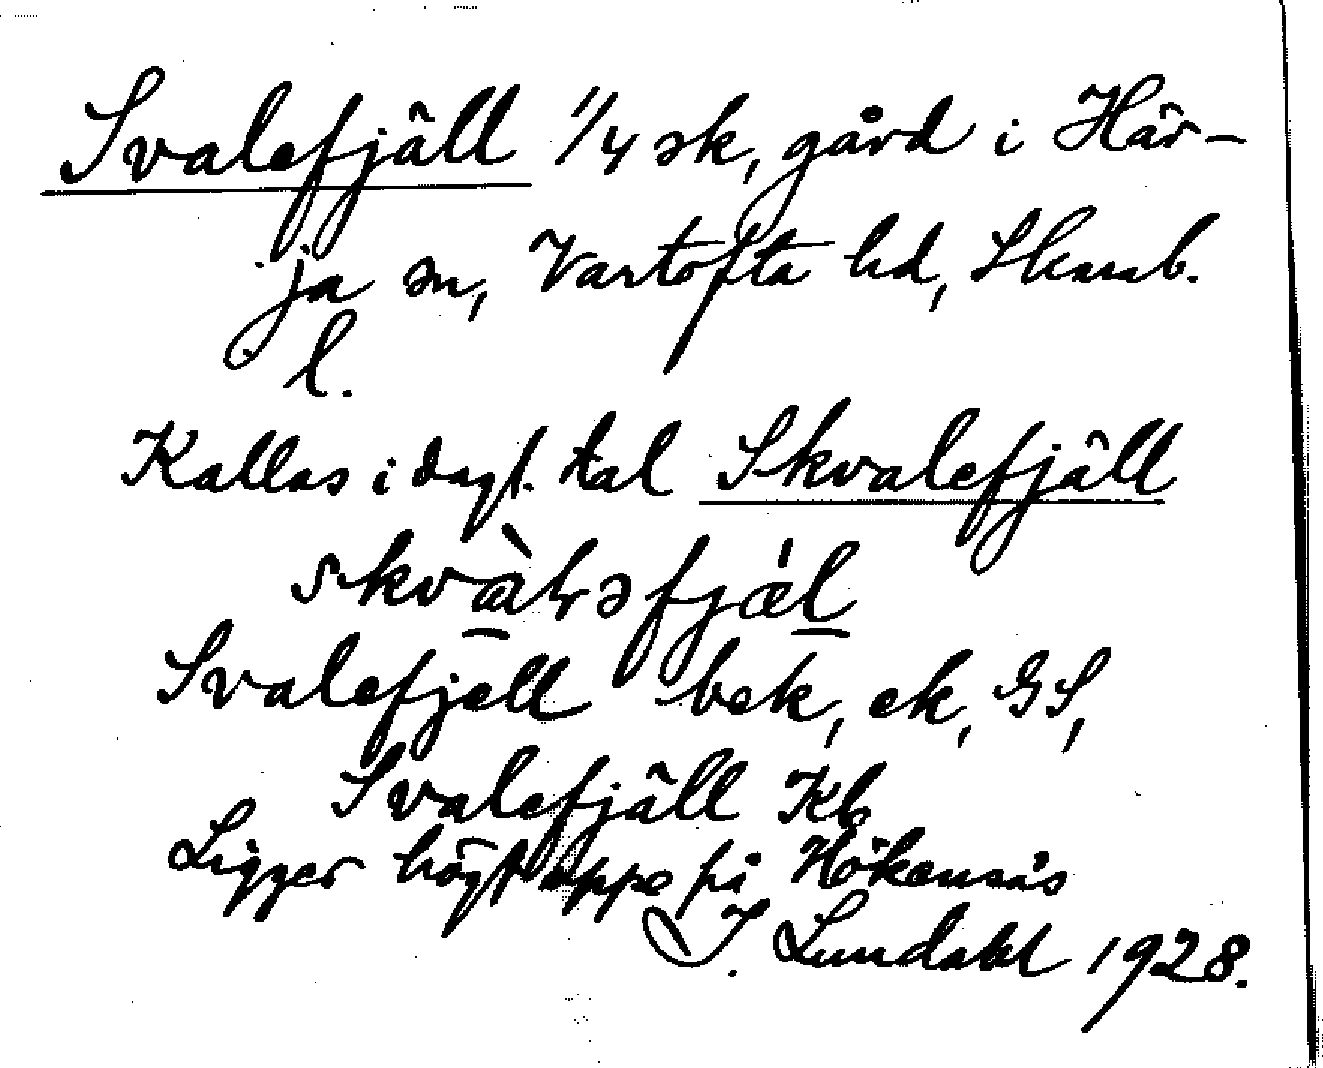 Svalefjäll 1/4 sk, gård i Här-
ja sn, Vartofta hd, Skarab.
l.
Kallas i dagl. tal Skvalefjäll
skvàləfjæ̀l
Svalefjell bek, ek, GS,
Svalefjäll Kb
Ligger högt uppe på Hökensås
I. Lundahl 1928.